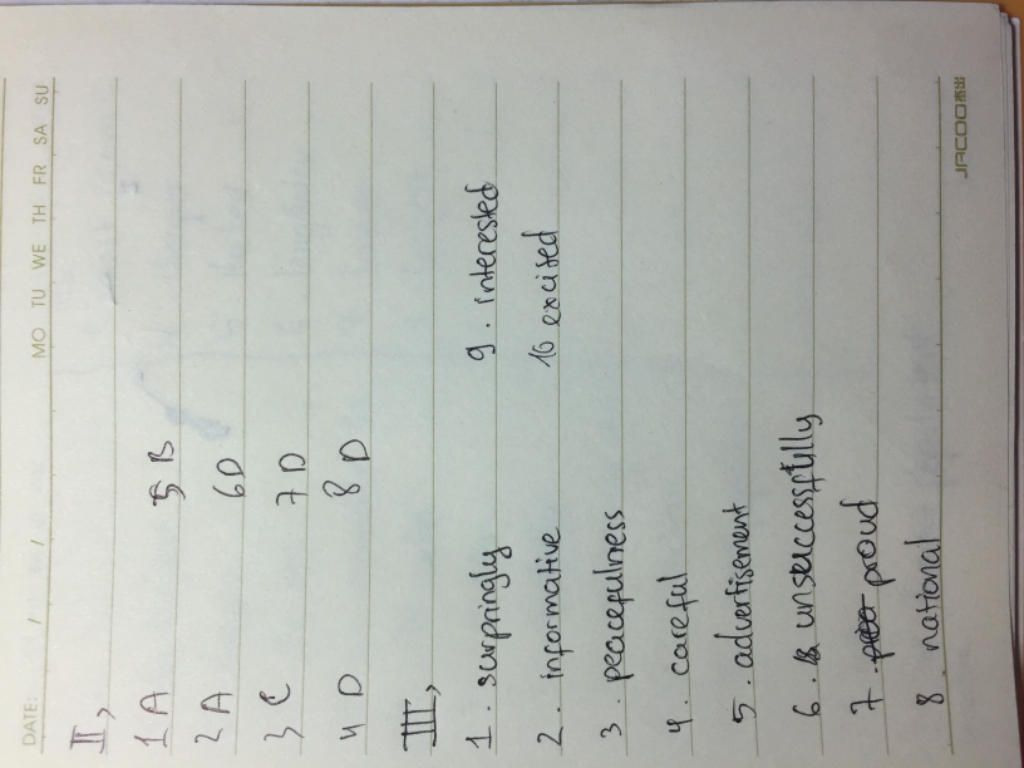 DATE: / / MO TU WE TH FR SA SU
II,
1 A 5 B
2 A 6 D
3 C 7 D
4 D 8 D
III,
1. surpringly 9. interested
2. informative 10 excised
3. peacefulness
4. careful
5. advertisement
6. unseuccessfully
7. proud
8 national
JACOO杰出